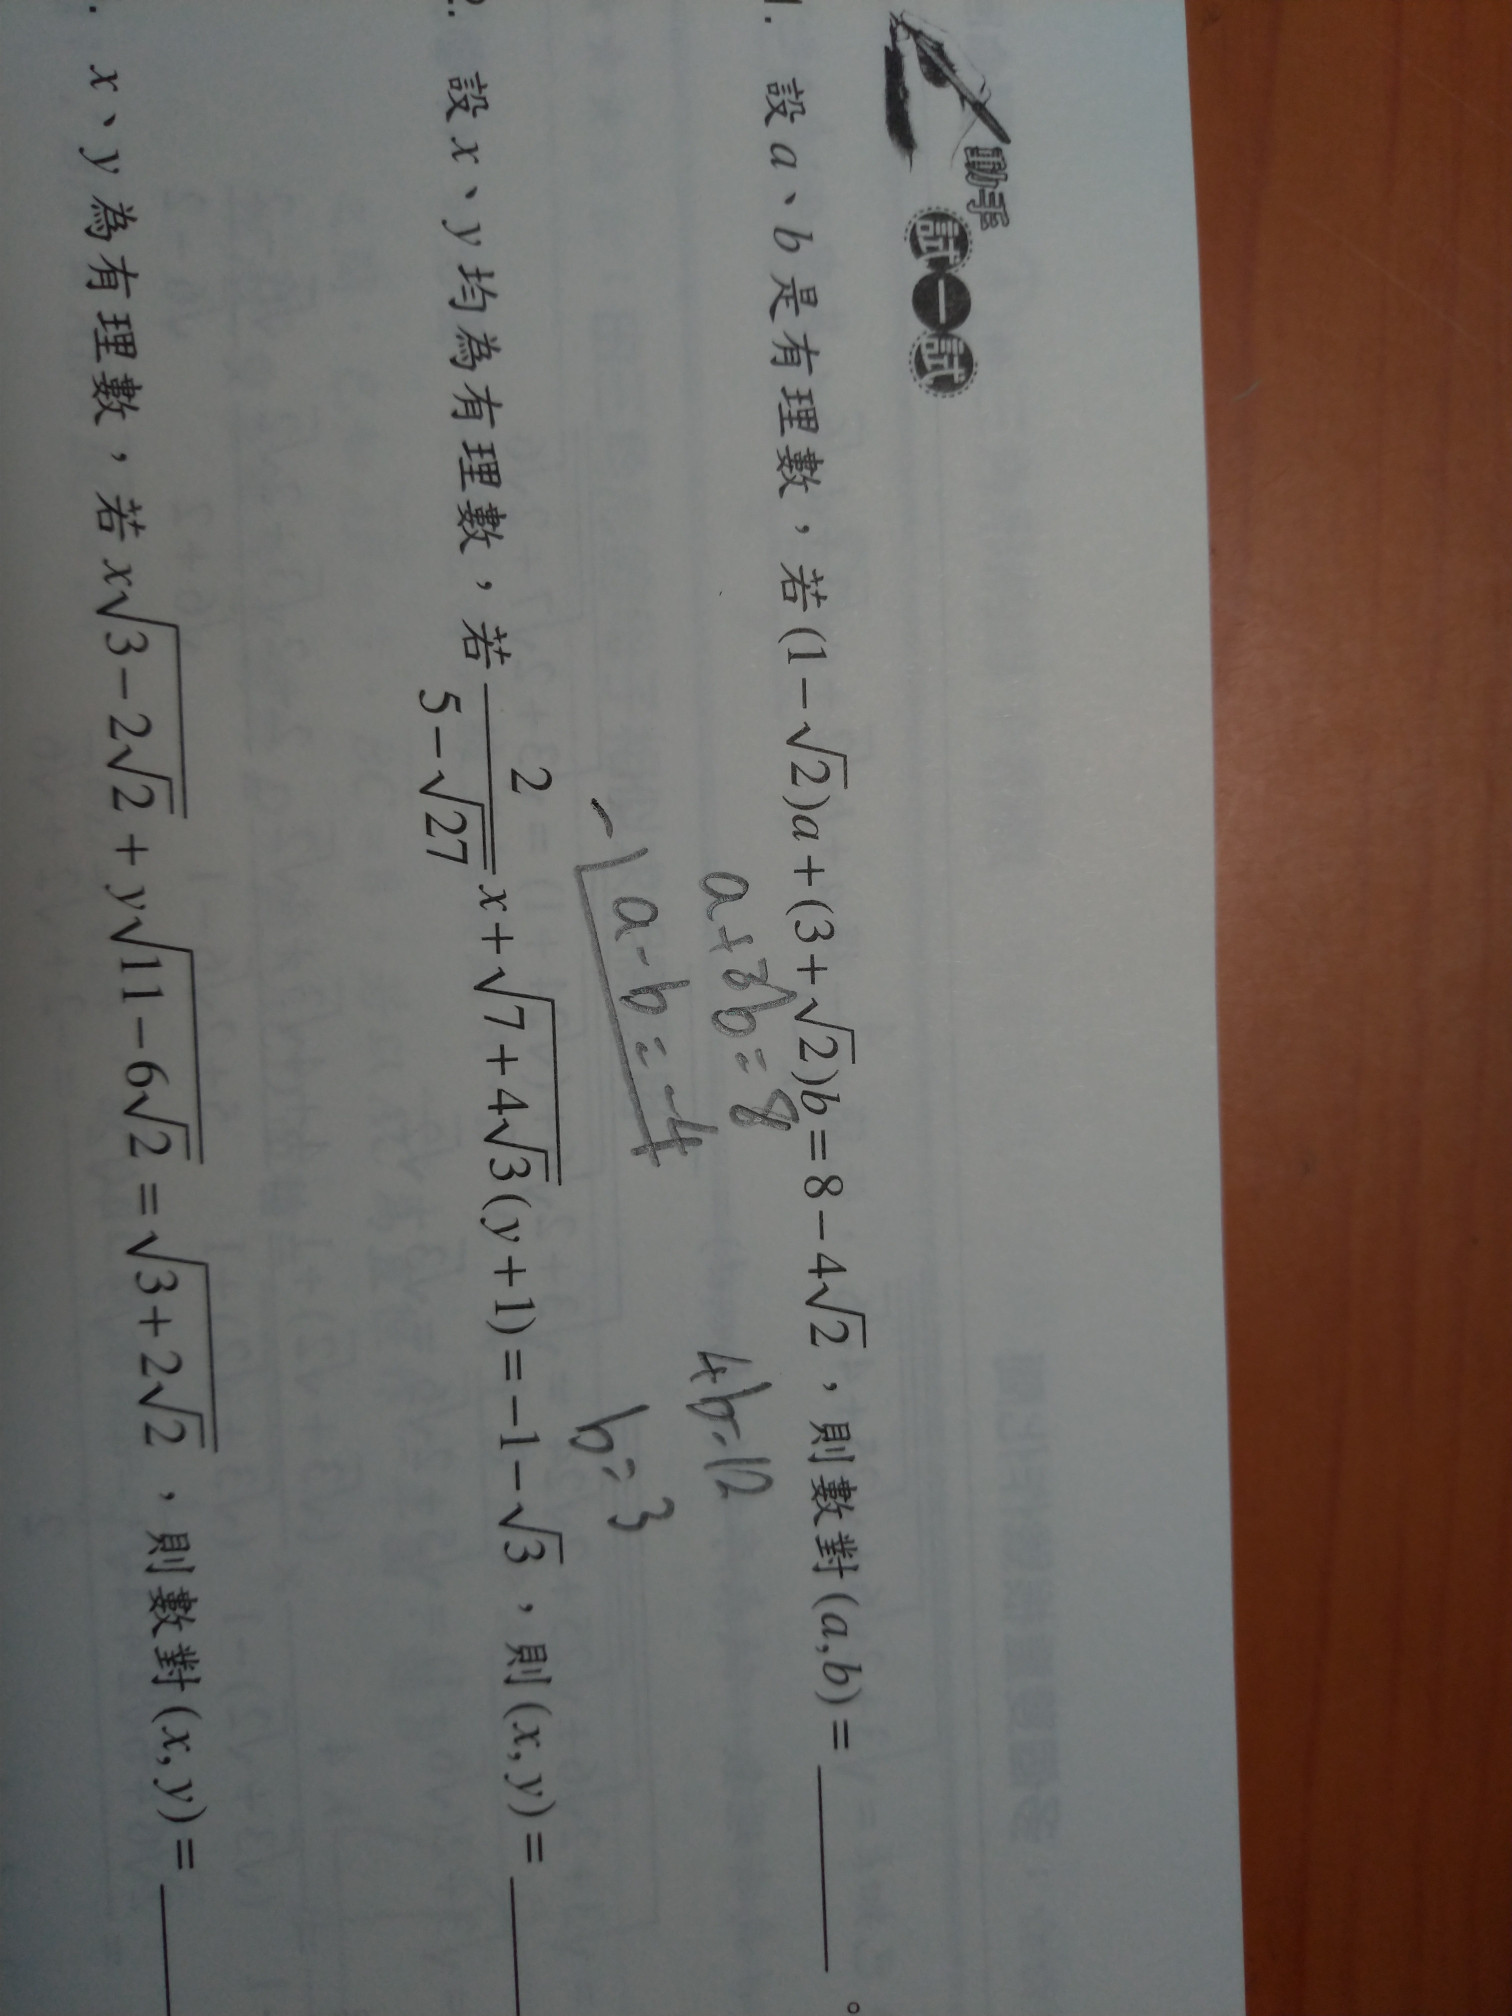 動手試一試
1. 設a、b是有理數，若(1-√2)a+(3+√2)b=8-4√2，則數對(a,b)=______。
a+3b=8
4b=12
-) a-b=-4
b=3
2. 設x、y均為有理數，若2/(5-√27)x+√(7+4√3)(y+1)=-1-√3，則(x,y)=______
. x、y為有理數，若x√(3-2√2)+y√(11-6√2)=√(3+2√2)，則數對(x,y)=______